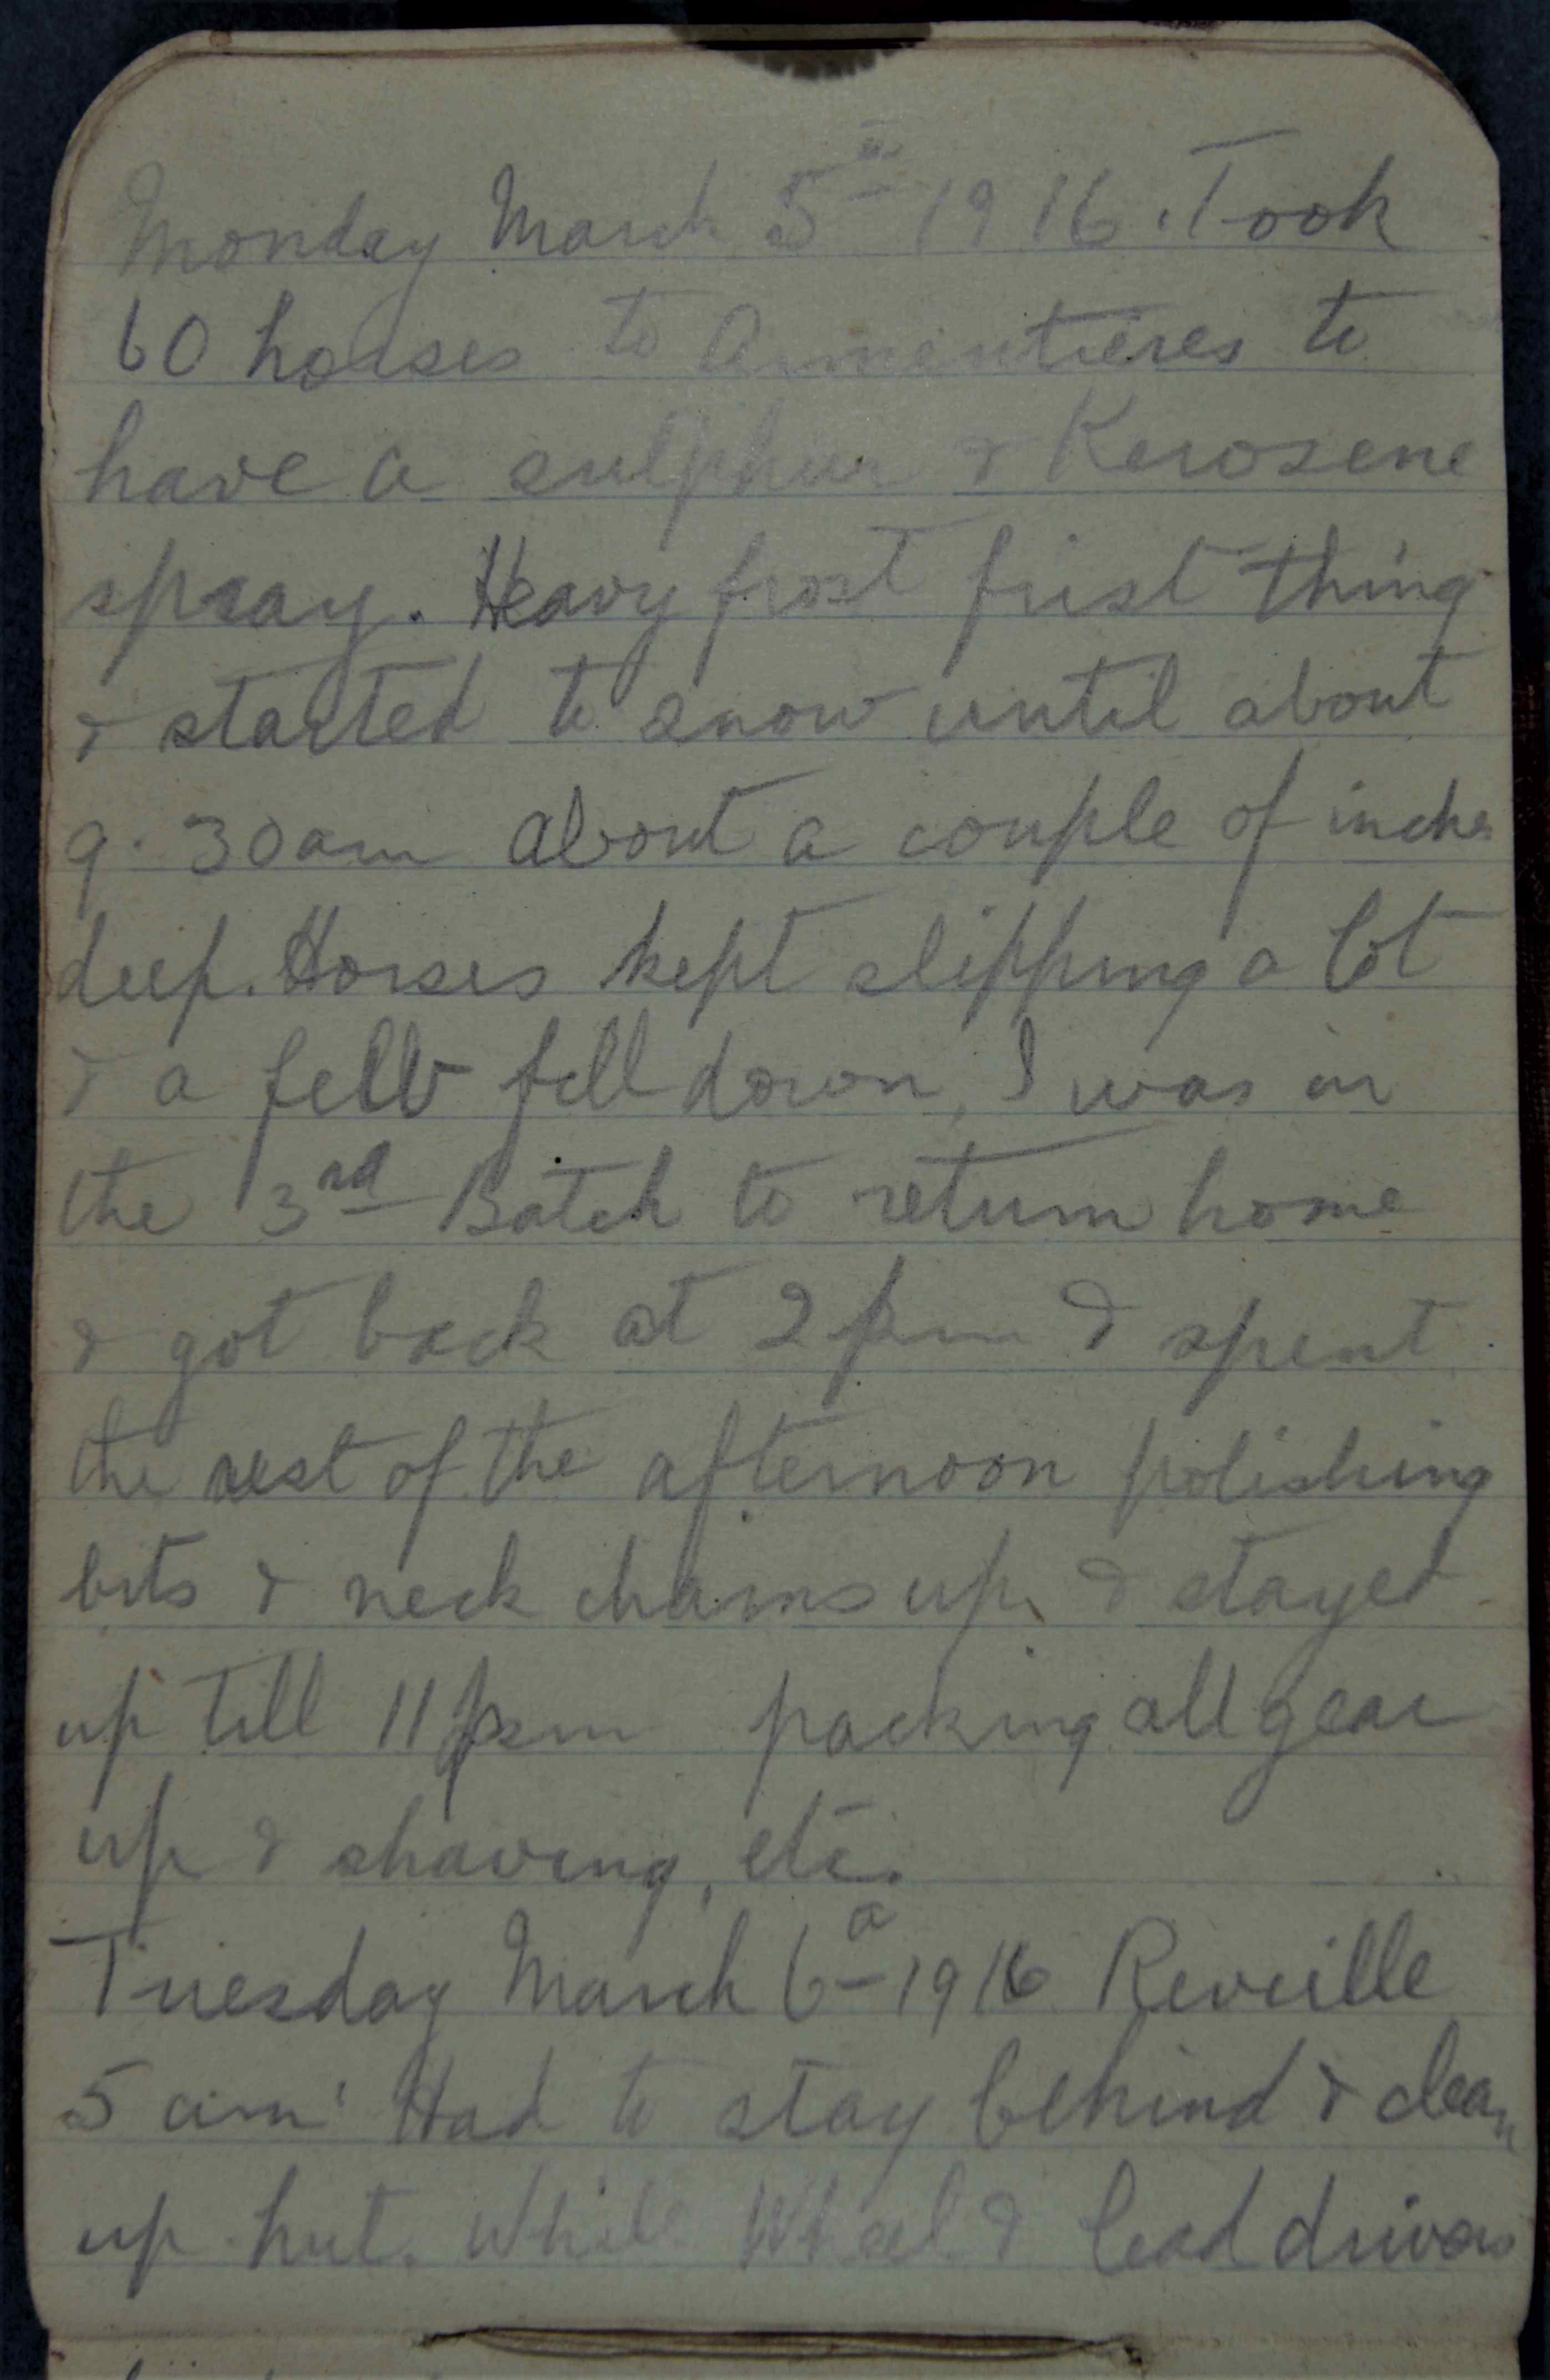 Monday March 5th 1916. Took
60 horses to Armentieres to
have a sulphur & Kerosene
spray. Heavy frost first thing
& started to snow until about
9.30am about a couple of inches
deep. Horses kept slipping a lot
& a few fell down, I was in
the 3rd Batch to return home
& got back at 2 pm & spent
the rest of the afternoon polishing
bits & neck chains up & stayed
up till 11 pm packing all gear
up & shaving, etc.
Tuesday March 6th 1916 Reveille
5 am. Had to stay behind & clean
up hut. While Wheel & lead drivers